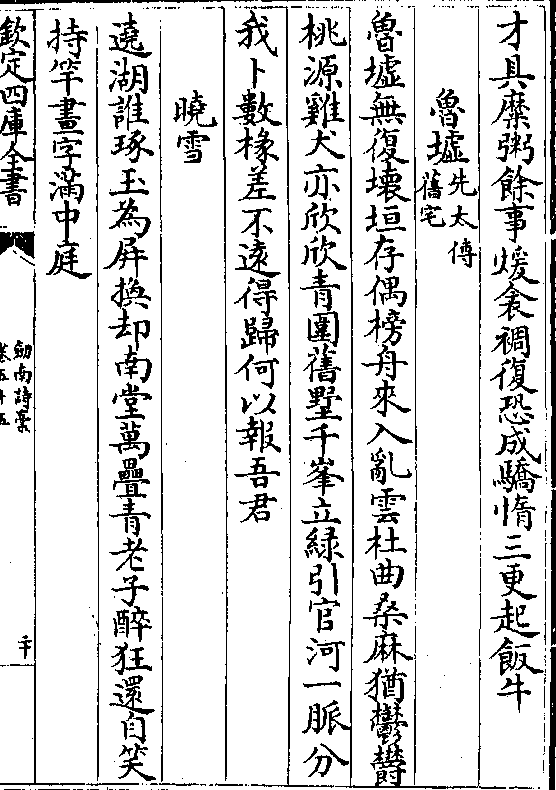 才具糜粥餘事煖衾裯復恐成驕惰三更起飯牛
魯墟先太傅舊宅
魯墟無復壞垣存偶榜舟來入亂雲杜曲桑麻猶鬱鬱
桃源雞犬亦欣欣青圍舊墅千峯立緑引官河一脈分
我卜數椽差不遠得歸何以報吾君
曉雪
遶湖誰琢玉為屏換却南堂萬疊青老子醉狂還自笑
持竿畫字滿中庭
欽定四庫全書
劒南詩藁
卷五十五
二十